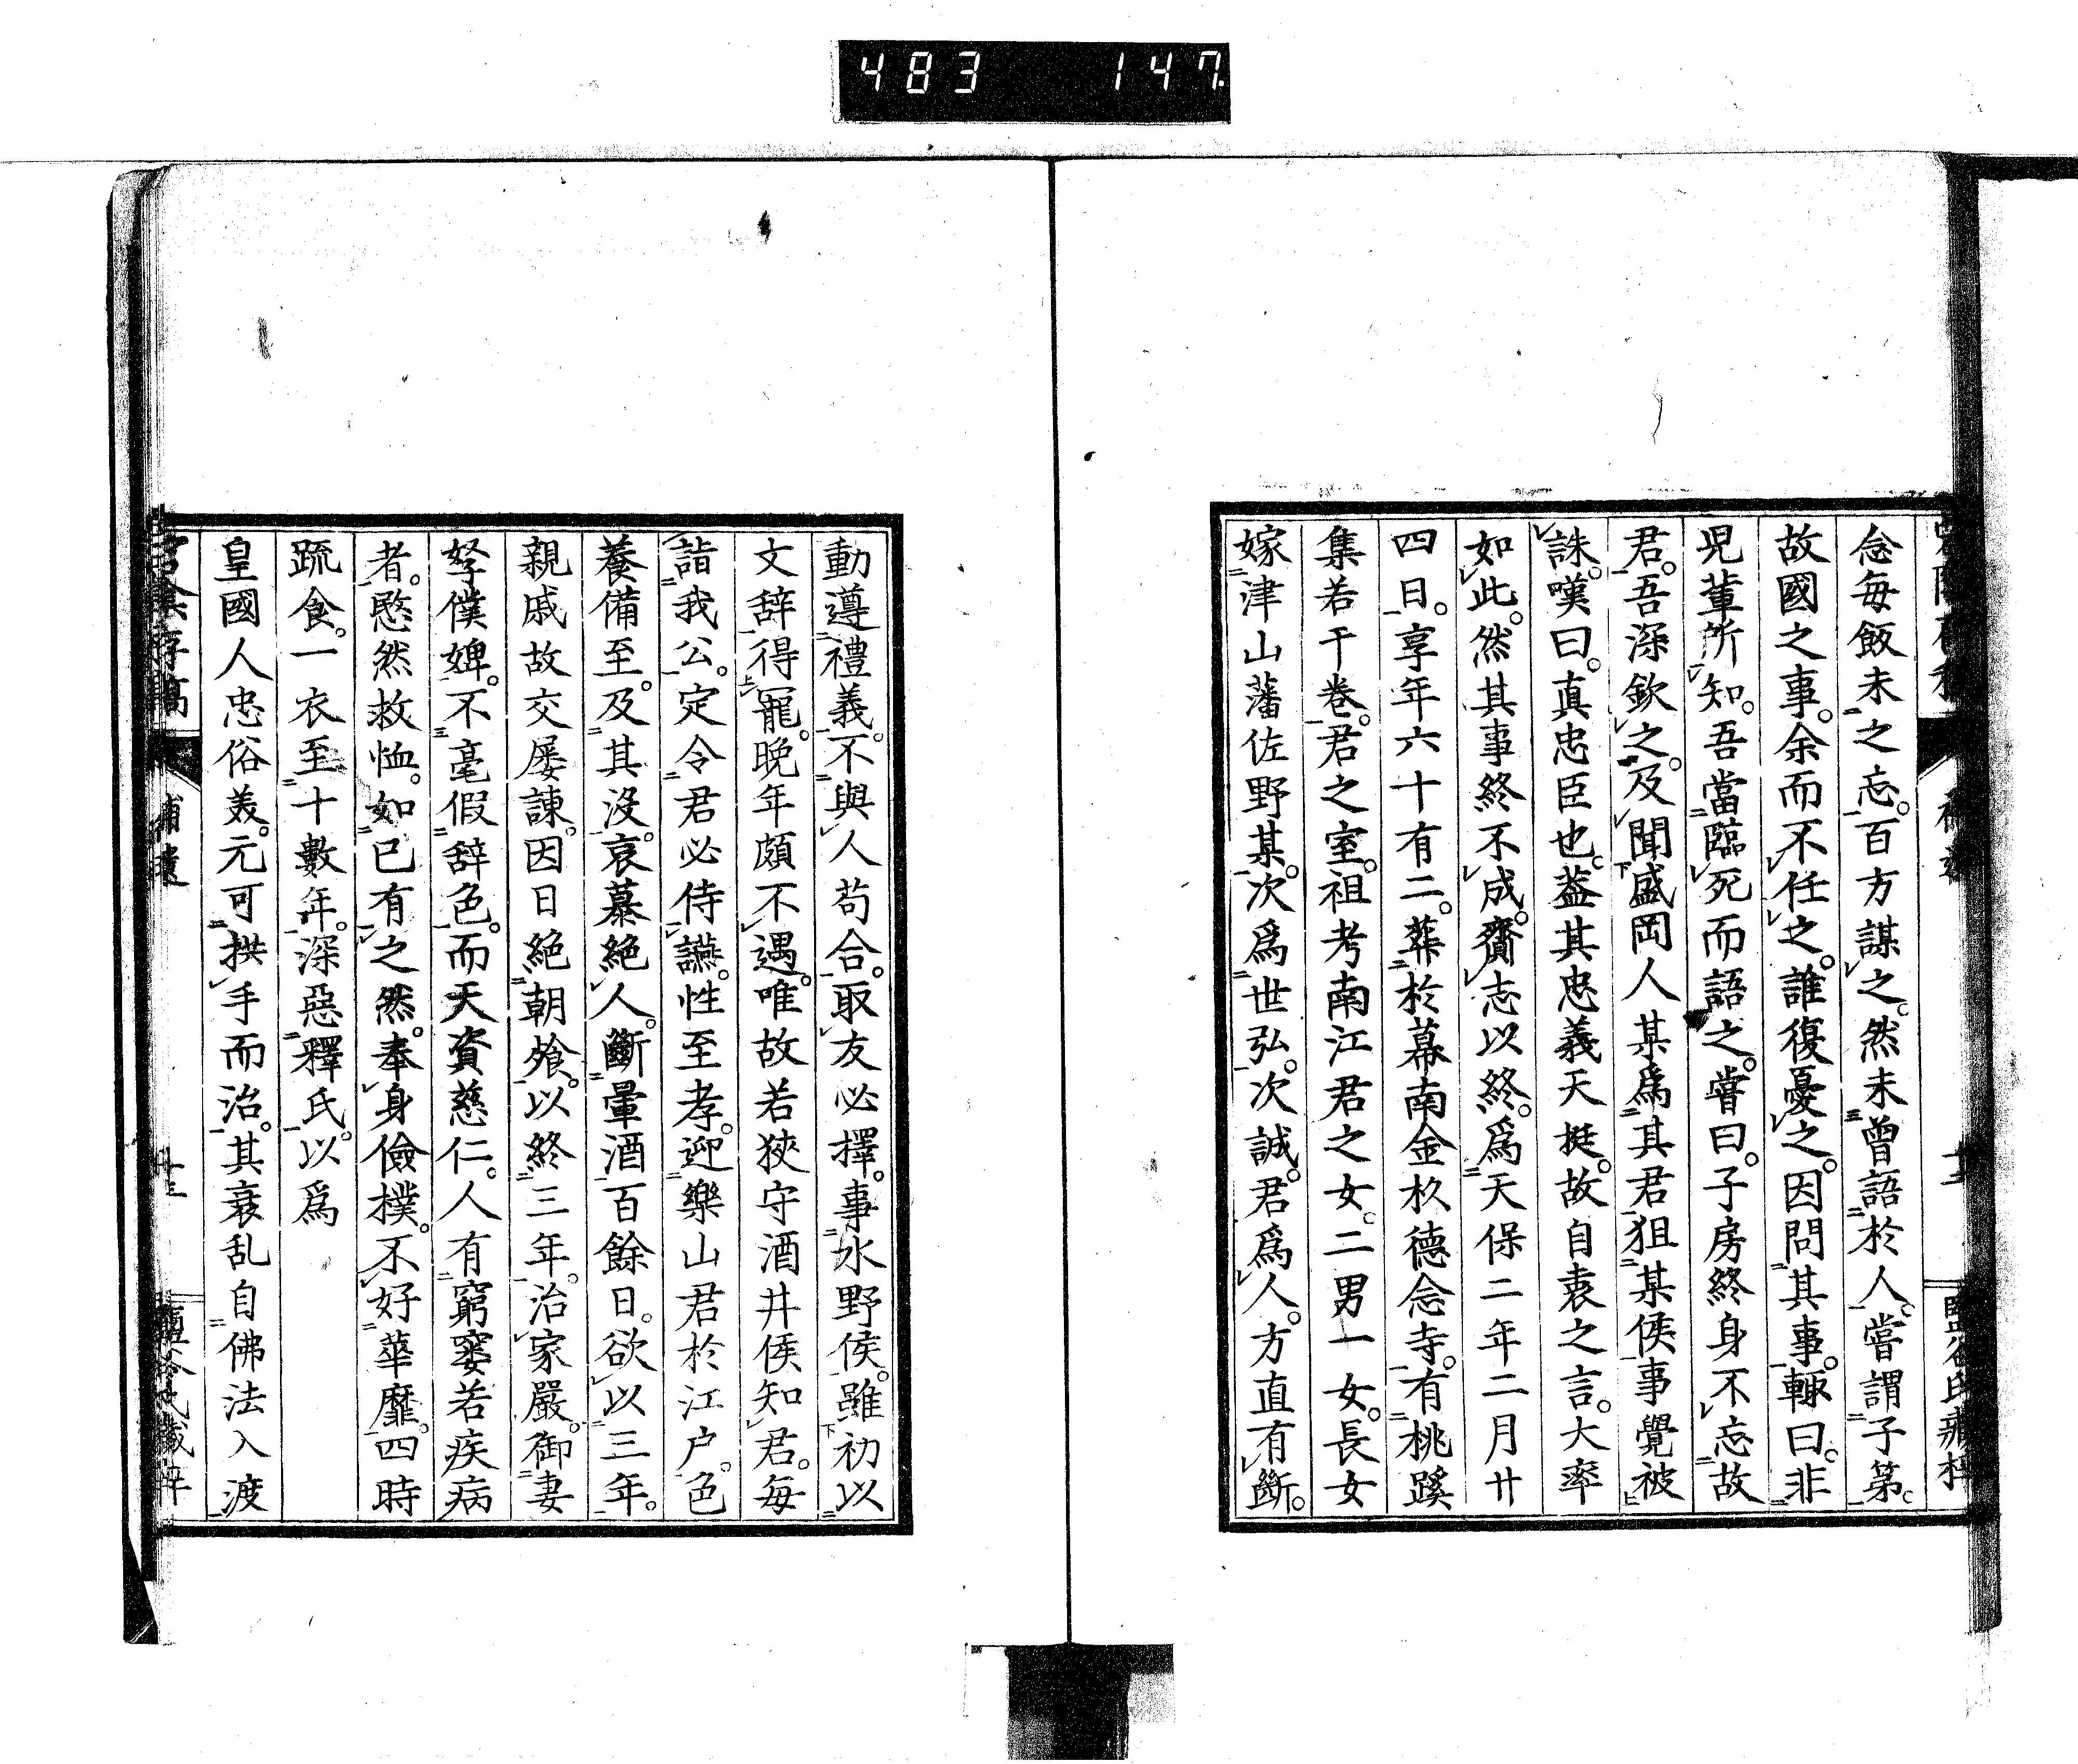 483 147
念每飯未之忘。百方謀之。然未曾語於人。嘗謂子第。
故國之事。余而不任之。誰復憂之。因問其事。輙曰。非
児輩所知。吾當臨死而語之。嘗曰。子房終身不忘故
君。吾深欽之。及聞盛岡人某爲其君狙某侯事覺被
誅。嘆曰。真忠臣也。葢其忠義天挺。故自衷之言。大率
如此。然其事終不成。齎志以終。爲天保二年二月廿
四日。享年六十有二。葬於幕南金杦德念寺。有桃蹊
集若干卷。君之室。祖考南江君之女。二男一女。長女
嫁津山藩佐野某。次爲世弘。次誠。君爲人。方直有斷。
動遵禮義。不與人苟合。取友必擇。事水野侯。雖初以
文辞得寵。晚年頗不遇。唯故若狹守酒井侯知君。每
詣我公。定令君必侍讌。性至孝。迎樂山君於江户。色
養備至。及其沒。哀慕絕人。斷暈酒百餘日。欲以三年。
親戚故交屡諌。因日絕朝飧。以終三年。治家嚴。御妻
孥僕婢。不毫假辞色。而天資慈仁。人有窮窭若疾病
者。愍然救恤。如已有之然。奉身儉撲。不好華靡。四時
蔬食。一衣至十數年。深惡釋氏。以爲
皇國人忠俗美。元可拱手而治。其衰乱自佛法入渡
補遺